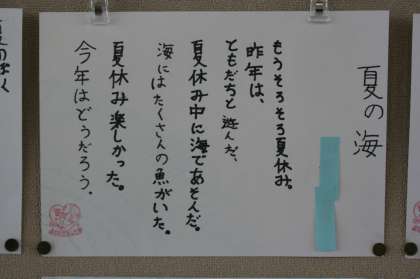 夏の海
もうそろそろ夏休み。
昨年は、
ともだちと遊んだ、
夏休み中に海であそんだ。
海にはたくさんの魚がいた。
夏休み楽しかった。
今年はどうだろう。